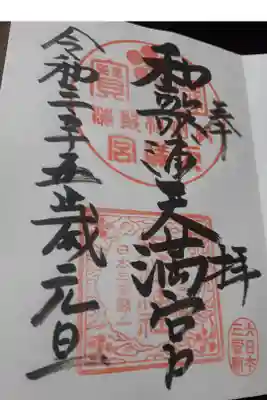 奉拝
和歌浦天満宮
令和三辛丑歳元旦
大日本
三菅廟